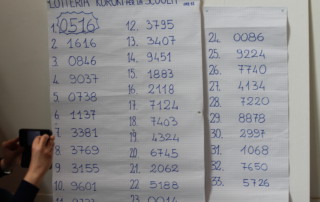 LOTTERIA
1. 0516
2. 1616
3. 0846
4. 9037
5. 0738
6. 1137
7. 3381
8. 3769
9. 3155
10. 9601
12. 3795
13. 3407
14. 9451
15. 1883
16. 2118
17. 7124
18. 7403
19. 4324
20. 6745
21. 2062
22. 5188
23. 0014
24. 0086
25. 9224
26. 7740
27. 4134
28. 7220
29. 8878
30. 2997
31. 1068
32. 7650
33. 5726